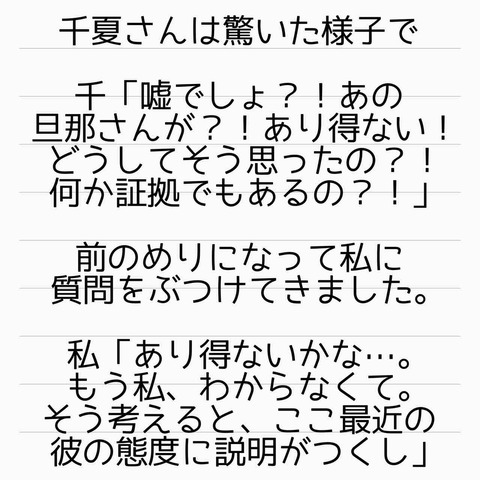 千夏さんは驚いた様子で
千「嘘でしょ？！あの
旦那さんが？！あり得ない！
どうしてそう思ったの？！
何か証拠でもあるの？！」
前のめりになって私に
質問をぶつけてきました。
私「あり得ないかな…。
もう私、わからなくて。
そう考えると、ここ最近の
彼の態度に説明がつくし」